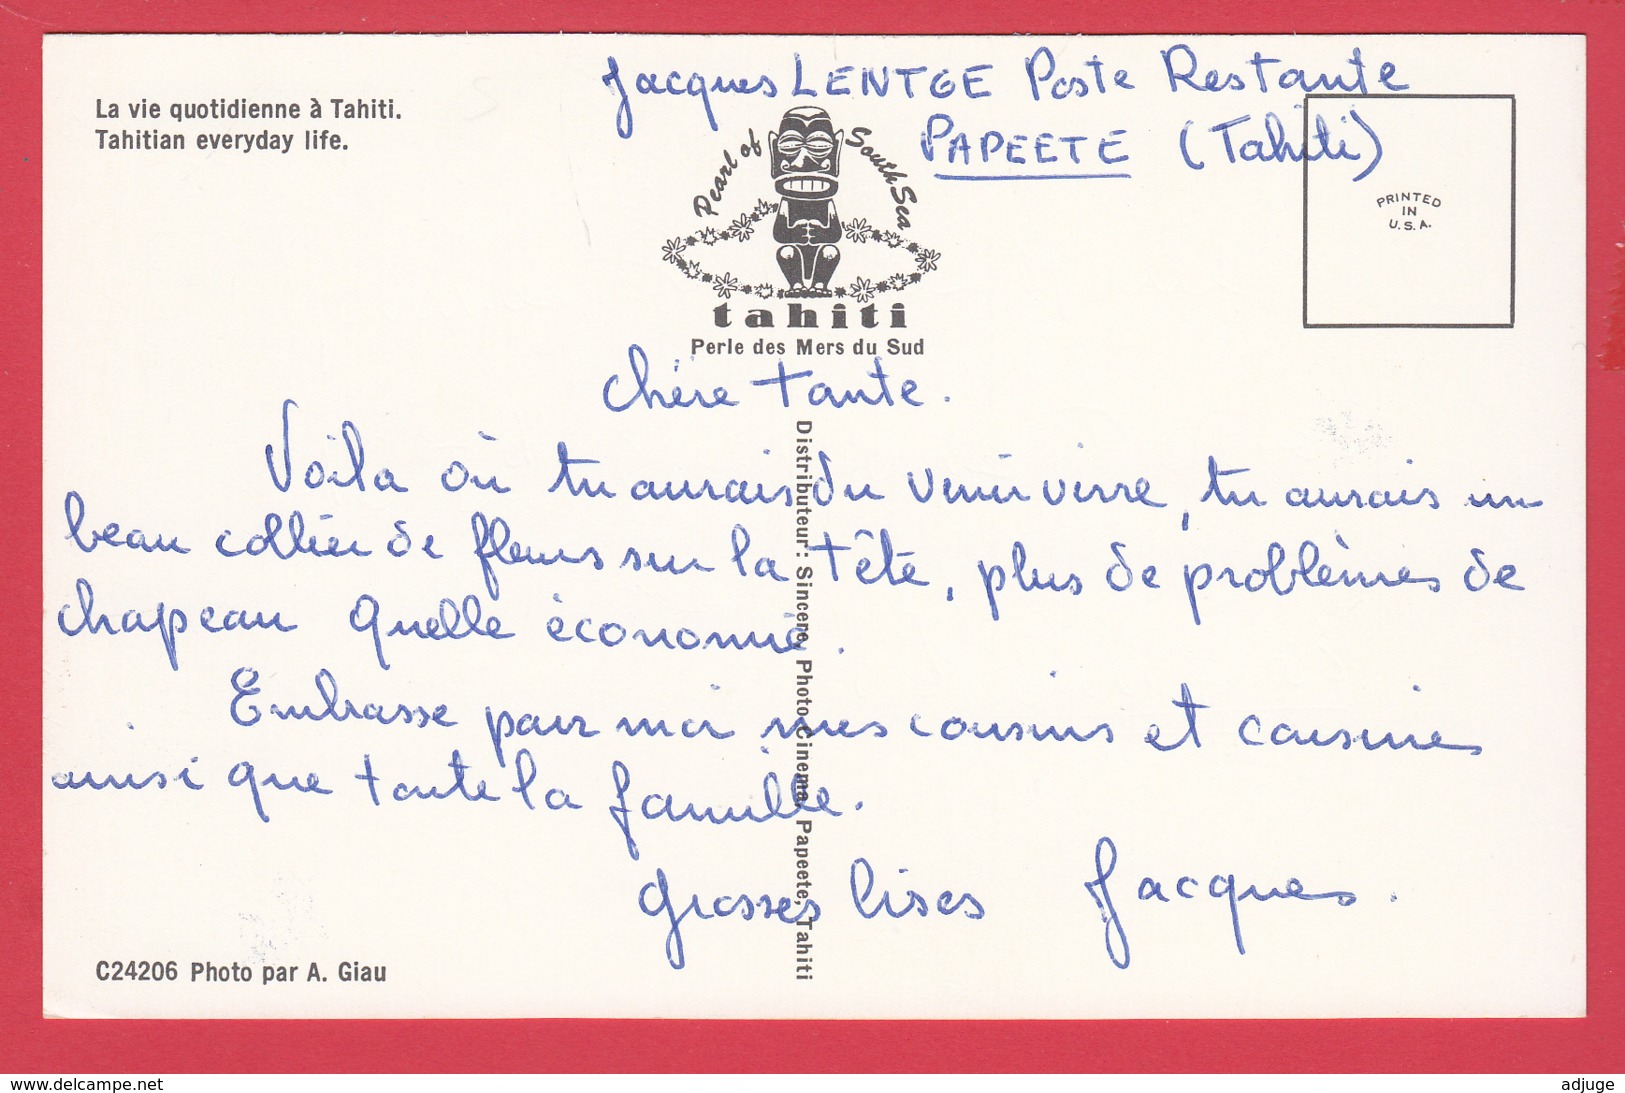 Jacques LENTGE Poste Restante
PAPEETE (Tahiti)
La vie quotidienne à Tahiti.
Tahitian everyday life.
Pearl of South Sea
tahiti
Perle des Mers du Sud
PRINTED
IN
U.S.A.
Chère tante.
Voila où tu aurais du venir vivre, tu aurais un
beau collier de fleurs sur la tête, plus de problèmes de
chapeau Quelle économie.
Embrasse pour moi mes cousins et cousines
ainsi que toute la famille.
Grosses bises Jacques.
Distributeur: Sincere, Photo Cinema, Papeete, Tahiti
C24206 Photo par A. Giau
www.delcampe.net
adjuge